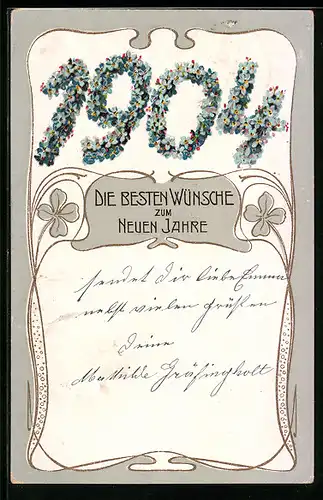 1904
DIE BESTEN WÜNSCHE
ZUM
NEUEN JAHRE
sendet Dir liebe Emma
nebst vielen Grüßen
Deine
Mathilde